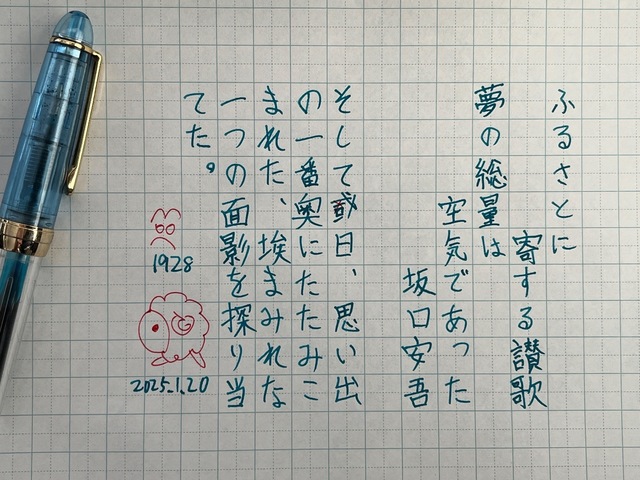 ふるさとに
寄する讃歌
夢の総量は
空気であった
坂口安吾
そして或日、思い出
の一番奥にたたみこ
まれた、埃まみれな
一つの面影を探り当
てた。
1928
2025.1.20